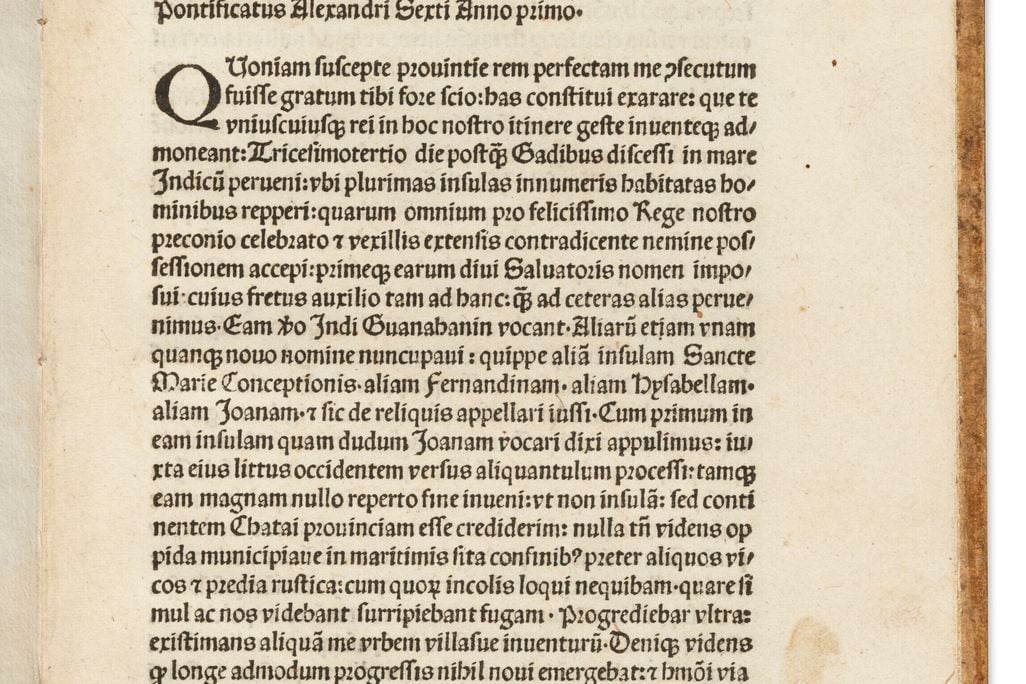 Pontificatus Alexandri Sexti Anno primo.
QUoniam suscepte prouintie rem perfectam me ꝯsecutum
fuisse gratum tibi fore scio: has constitui exarare: que te
vniuscuiusqꝫ rei in hoc nostro itinere geste inuenteqꝫ ad⸗
moneant: Tricesimotertio die postqꝫ̄ Gadibus discessi in mare
Indicū perueni: vbi plurimas insulas innumeris habitatas ho⸗
minibus repperi: quarum omnium pro felicissimo Rege nostro
preconio celebrato ⁊ vexillis extensis contradicente nemine pos⸗
sessionem accepi: primeqꝫ earum diui Saluatoris nomen impo⸗
sui: cuius fretus auxilio tam ad hanc: qꝫ̄ ad ceteras alias perue⸗
nimus. Eam ꝟo Indi Guanahanin vocant. Aliarū etiam vnam
quanqꝫ nouo nomine nuncupaui: quippe aliā insulam Sancte
Marie Conceptionis. aliam Fernandinam. aliam Hysabellam.
aliam Joanam. ⁊ sic de reliquis appellari iussi. Cum primum in
eam insulam quam dudum Joanam vocari dixi appulimus: iu⸗
xta eius littus occidentem versus aliquantulum processi: tamqꝫ
eam magnam nullo reperto fine inueni: vt non insulā: sed conti
nentem Chatai prouinciam esse crediderim: nulla tñ videns op
pida municipiaue in maritimis sita confinibꝰ preter aliquos vi⸗
cos ⁊ predia rustica: cum quoꝝ incolis loqui nequibam. quare si
mul ac nos videbant surripiebant fugam. Progrediebar vltra:
existimans aliquā me vrbem villasue inuenturū. Deniqꝫ videns
ꝙ longe admodum progressis nihil noui emergebat: ⁊ hmōi via